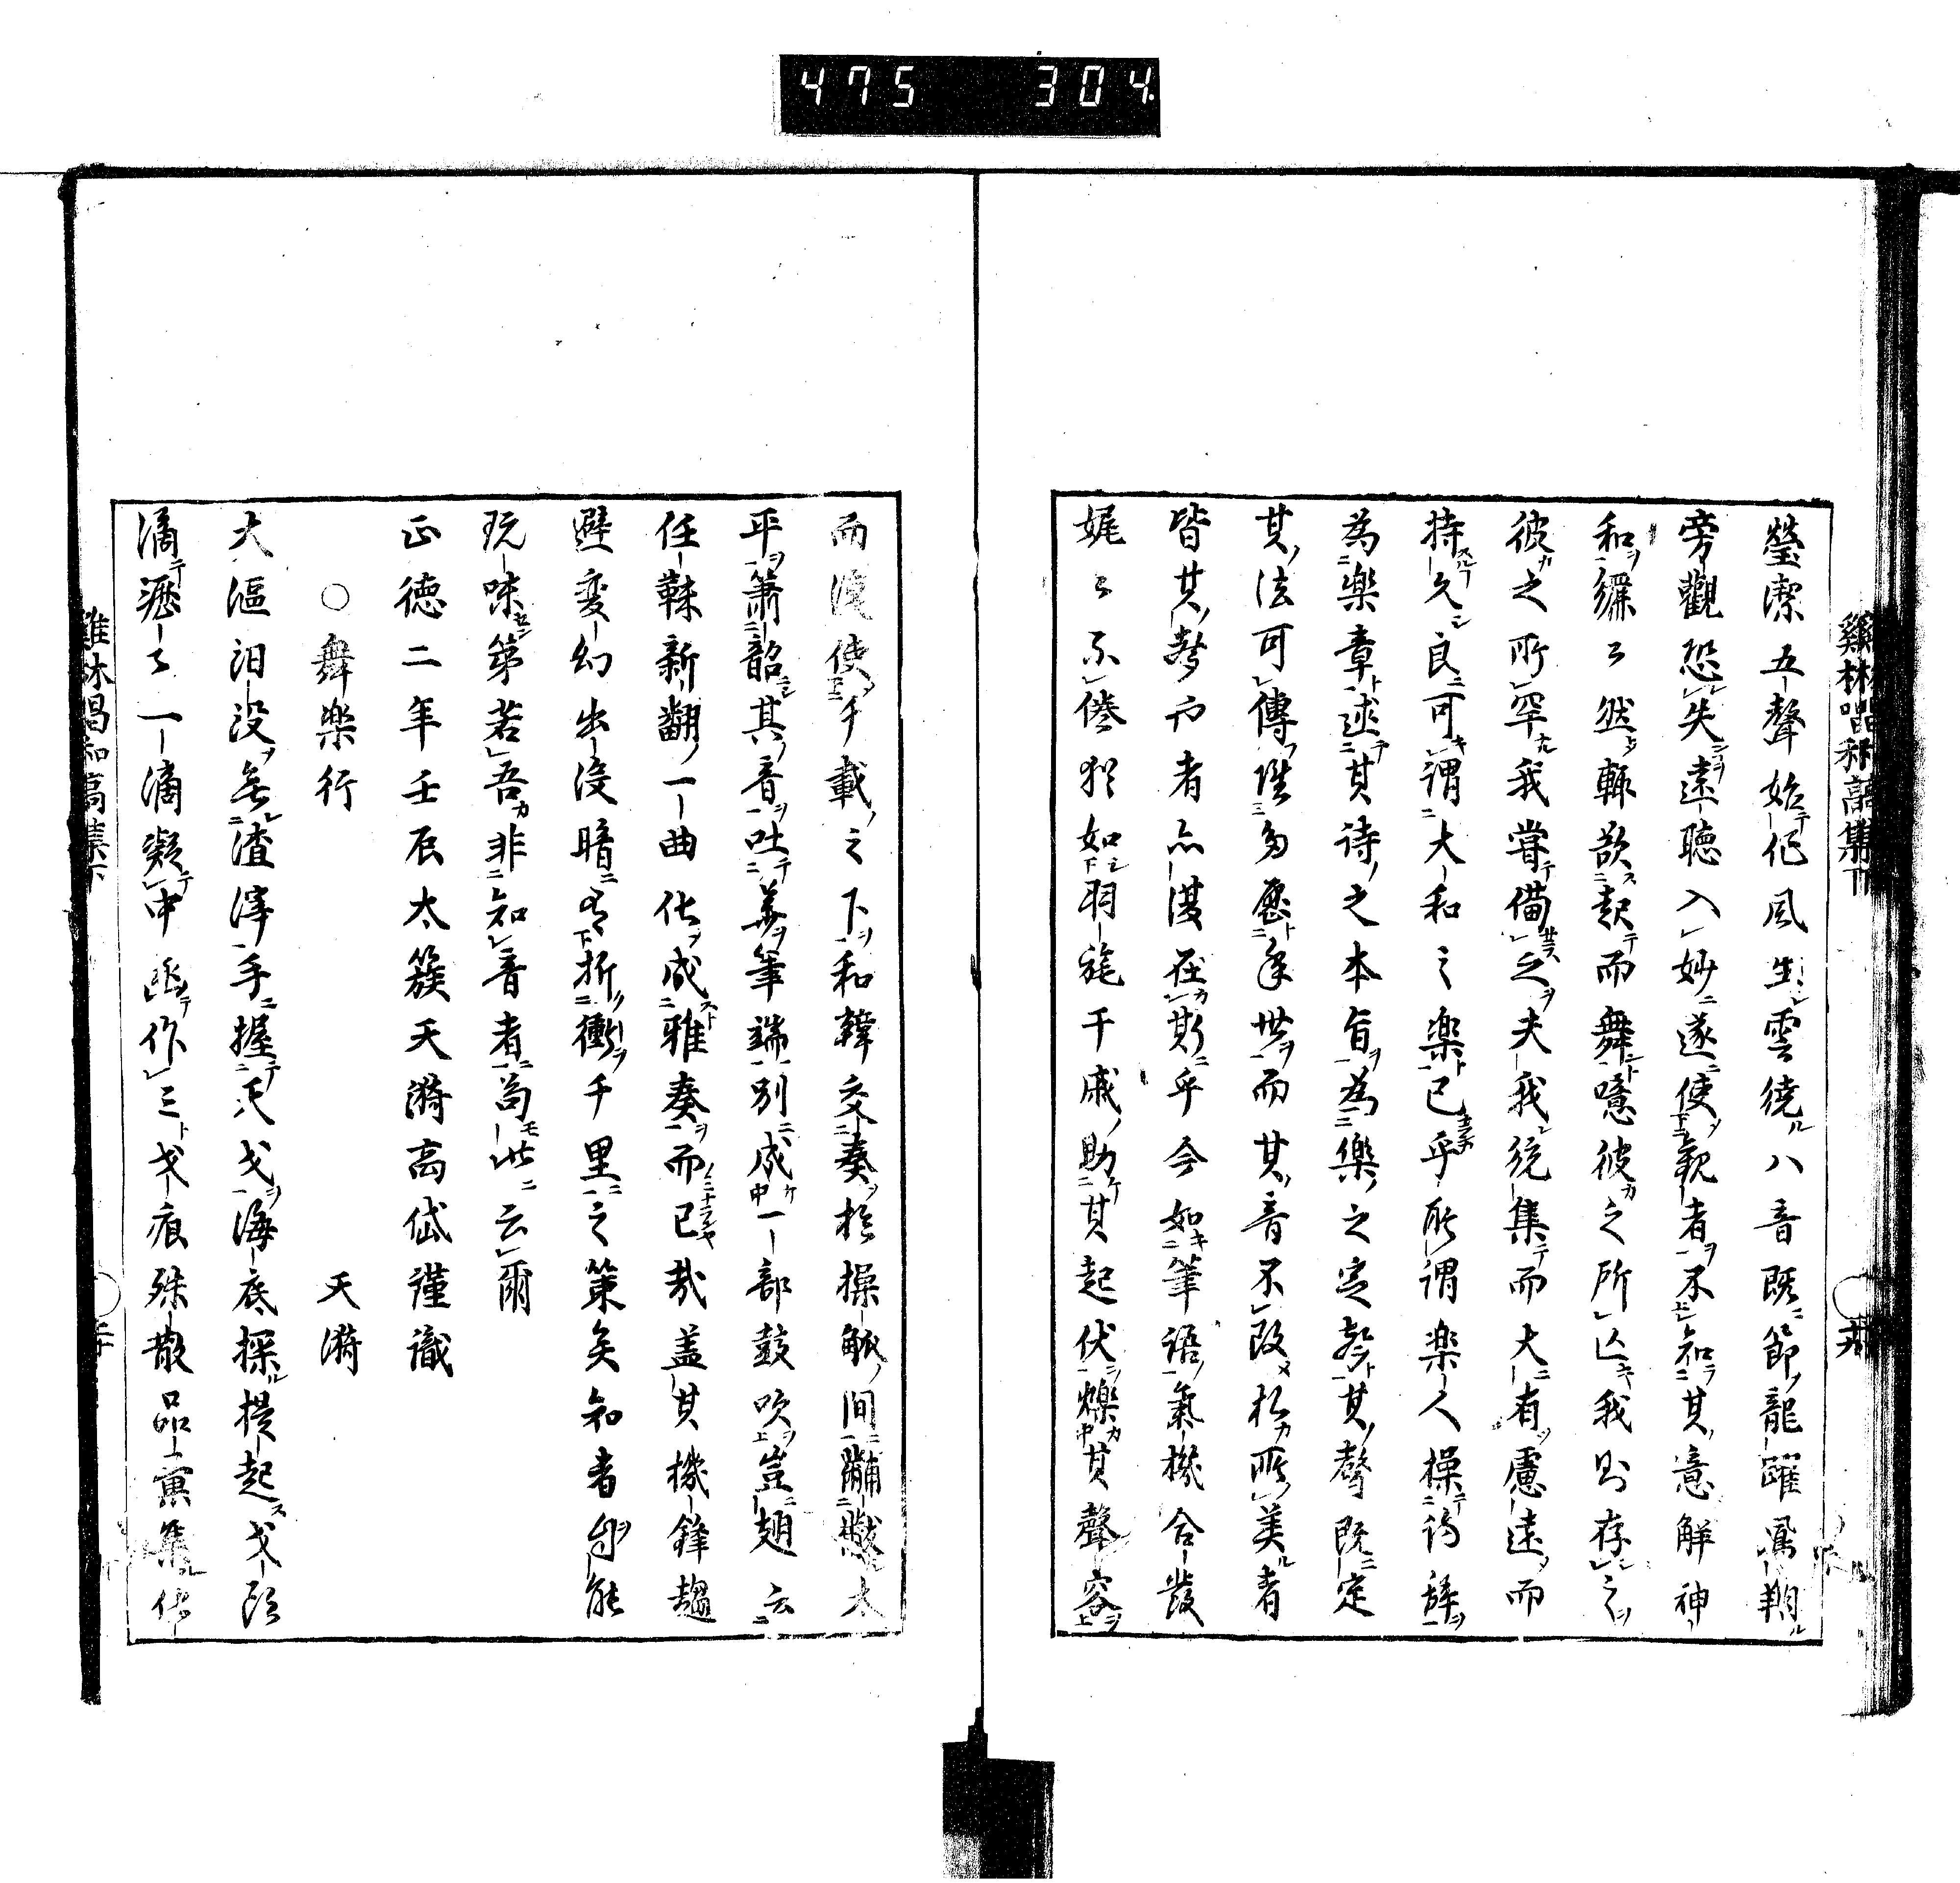 475 304
鷄林唱和藁集下
瑩潔五聲始作風生雲繞八音既節龍躍鳳翔
旁觀恐失遠聽入妙遂使觀者不知其意解神
和纚々然輙欲起而舞噫彼之所亡我則存之
彼之所罕我嘗備之夫我統集而大有慮遠而
持久良可謂大和之樂已乎所謂樂人操詩辞
為樂章述其詩之本旨為樂之定聲其聲既定
其法可傳雖多歴年世而其音不改於所美者
皆其聲而者亦漠在斯乎今如筆語氣機合發
娓々不倦猶如羽旄干戚助其起伏爍其聲容
而漢使千載之下和韓交奏於操觚間黼黻太
平簫韶其音吐華筆端別成一部鼓吹豈翅云
任韎新翻一曲化成雅奏而已哉盖其機鋒趨
避変幻出没暗有折衝千里之策矣知者自能
玩味第若吾非知音者苟此云爾
正徳二年壬辰太簇天漪高岱謹識
○舞樂行 天漪
大漚汩没無渣滓手握弐戈海底探提起戈頭
滴瀝々一滴凝中凾作三戈痕殊散品彙集化
雞林唱和藁集下